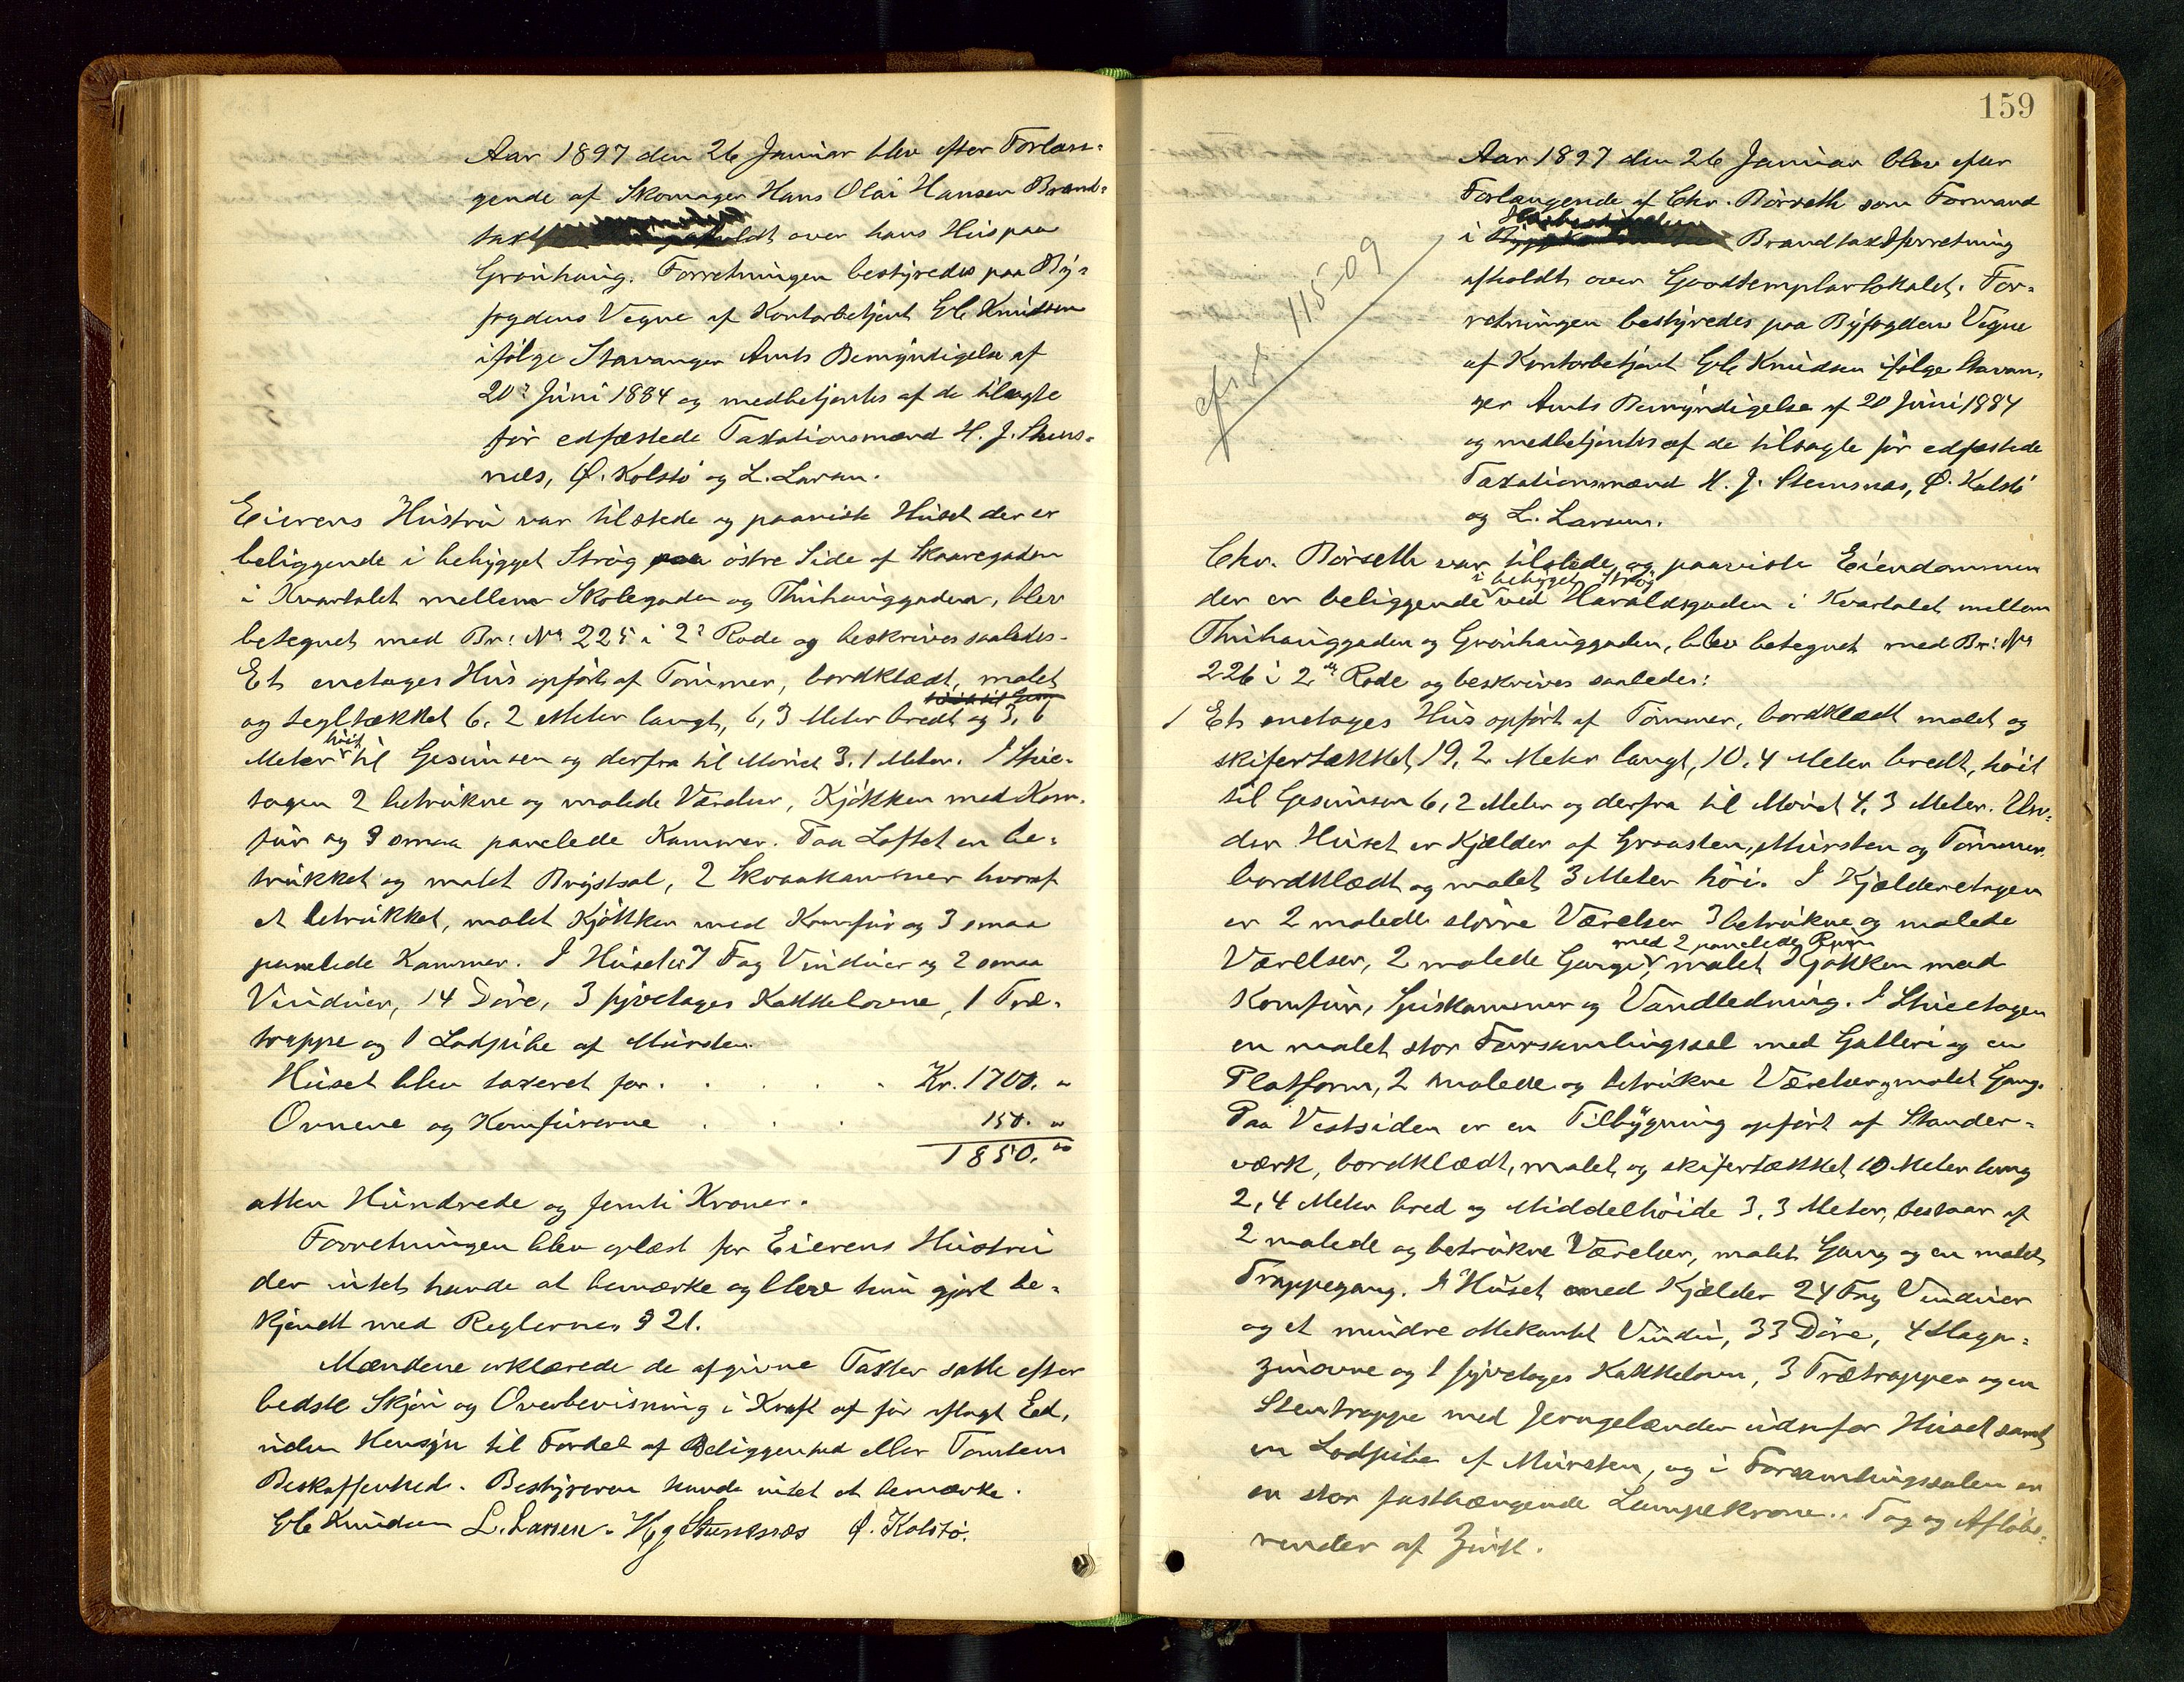 Aar 1897 den 26 Januar blev efter Forlan-
gende af Skomager Hans Olai Hansen Brand-
taxt afholdt over hans Hus paa
Grønhaug. Forretningen bestyredes paa By-
fogdens Vegne af Kontorbetjent Knudsen
ifølge Stavanger Amts Bemyndigelse af
20de Juni 1884 og medbetjentes af de tilsagte
før edfæstede Taxationsmænd H. J. Stens-
næs, Ø. Kolstø og L. Larsen.
Eierens Hustru var tilstede og paaviste Huset der er
beliggende i bebygget Strøg paa østre Side af Skaaregaden
i Kvartalet mellem Skolegaden og Thuhauggaden, blev
betegnet med Br: No 225 i 2den Rode og beskrives saaledes.
Et enetages Hus opført af Tømmer, bordklædt, malet
og tegltækket 6,2 Meter langt, 6,3 Meter bredt og 3,6
Meter høit til Gesimsen og derfra til Mønet 3,1 Meter. I Stue-
tagen 2 betrukne og malede Værelser, Kjøkken med Kom-
fur og 3 smaa panelede Kammer. Paa Loftet en be-
trukket og malet Brystsal, 2 Skraakammer hvoraf
et betrukket, malet Kjøkken med Komfur og 3 smaa
panelede Kammer. I Huset er 7 Fag Vinduer og 2 smaa
Vinduer, 14 Døre, 3 fyretages Kakkelovne, 1 Træ-
trappe og 1 Lodpibe af Mursten.
Huset blev taxeret for . . . . . Kr. 1700. "
Ovnene og Komfurerne . . . 150. "
1850. "
atten Hundrede og femti Kroner.
Forretningen blev oplæst for Eierens Hustru
der intet havde at bemærke og blev hun gjort be-
kjendt med Reglernes § 21.
Mændene erklærede de afgivne Taxter satte efter
bedste Skjøn og Overbevisning i Kraft af før aflagt Eed,
uden Hensyn til Fordel af Beliggenhed eller Tomtens
Beskaffenhed. Bestyreren havde intet at bemærke.
Knudsen L. Larsen. H J Stensnæs Ø. Kolstø.
159
115-09
Aar 1897 den 26 Januar blev efter
Forlangende af Chr. Børseth som Formand
i Brandtaxtforretning
afholdt over Goodtemplarlokalet. For-
retningen bestyredes paa Byfogdens Vegne
af Kontorbetjent Knudsen ifølge Stavan-
ger Amts Bemyndigelse af 20 Juni 1884
og medbetjentes af de tilsagte før edfæstede
Taxationsmænd H. J. Stensnæs, Ø. Kolstø
og L. Larsen.
Chr. Børseth var tilstede og paaviste Eiendommen
der er beliggende i bebygget Strøg ved Haraldsgaden i Kvartalet mellem
Thuhauggaden og Grønhauggaden, blev betegnet med Br: No
226 i 2den Rode og beskrives saaledes:
1 Et enetages Hus opført af Tømmer, bordklædt malet og
skifertækket, 19,2 Meter langt, 10,4 Meter bredt, høit
til Gesimsen 6,2 Meter og derfra til Mønet 4,3 Meter. Un-
der Huset er Kjælder af Graasten, Mursten og Tømmer,
bordklædt og malet 3 Meter høi. I Kjælderetagen
er 2 malede større Værelser 3 betrukne og malede
Værelser, 2 malede Gange med 2 panelede Rum, malet Kjøkken med
Komfur, Spiskammer og Vandledning. I Stuetagen
en malet stor Forsamlingssal med Galleri og en
Platform, 2 malede og betrukne Værelser, malet Gang.
Paa Vestsiden er en Tilbygning opført af Stander-
værk, bordklædt, malet og skifertækket 10 Meter lang
2,4 Meter bred og Middelhøide 3,3 Meter, bestaar af
2 malede og betrukne Værelser, malet Gang og en malet
Trappegang. I Huset med Kjælder 24 Fag Vinduer
og et mindre ottekantet Vindu, 33 Døre, 4 Maga-
zinovne og 1 fyretages Kakkelovn, 3 Trætrapper og en
Stentrappe med Jerngelænder udenfor Huset samt
en Lodpibe af Mursten, og i Forsamlingssalen en
en stor fasthængende Lampekrone. Tag og Afløbs-
render af Zink.